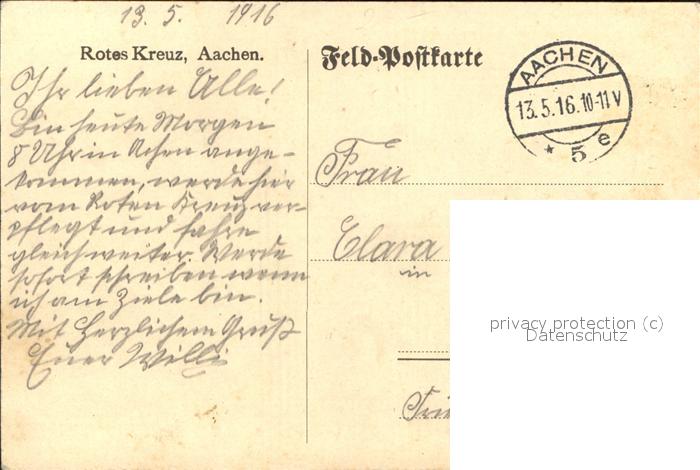 13. 5. 1916
Rotes Kreuz, Aachen.
Ihr lieben Alle!
Bin heute Morgen
8 Uhr in Achen ange-
kommen, werde hier
vom Roten Kreuz ver-
pflegt und fahre
gleich weiter. Werde
sofort schreiben wenn
ich am Ziele bin.
Mit herzlichem Gruß
Euer Willi
Feld-Postkarte
AACHEN
13.5.16.10-11V
* 5 e
Frau
Clara
in
privacy protection (c)
Datenschutz